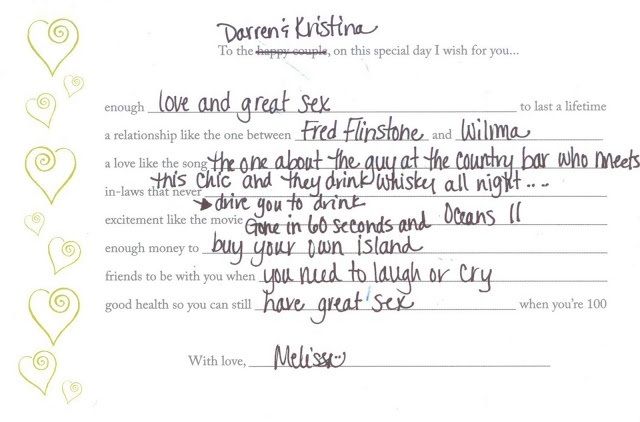 Darren & Kristina
To the happy couple, on this special day I wish for you...
enough love and great sex to last a lifetime
a relationship like the one between Fred Flinstone and Wilma
a love like the song the one about the guy at the country bar who meets
this chic and they drink whiskey all night...
in-laws that never drive you to drink
excitement like the movie Gone in 60 seconds and Oceans 11
enough money to buy your own island
friends to be with you when you need to laugh or cry
good health so you can still have great sex when you're 100
With love, Melissa